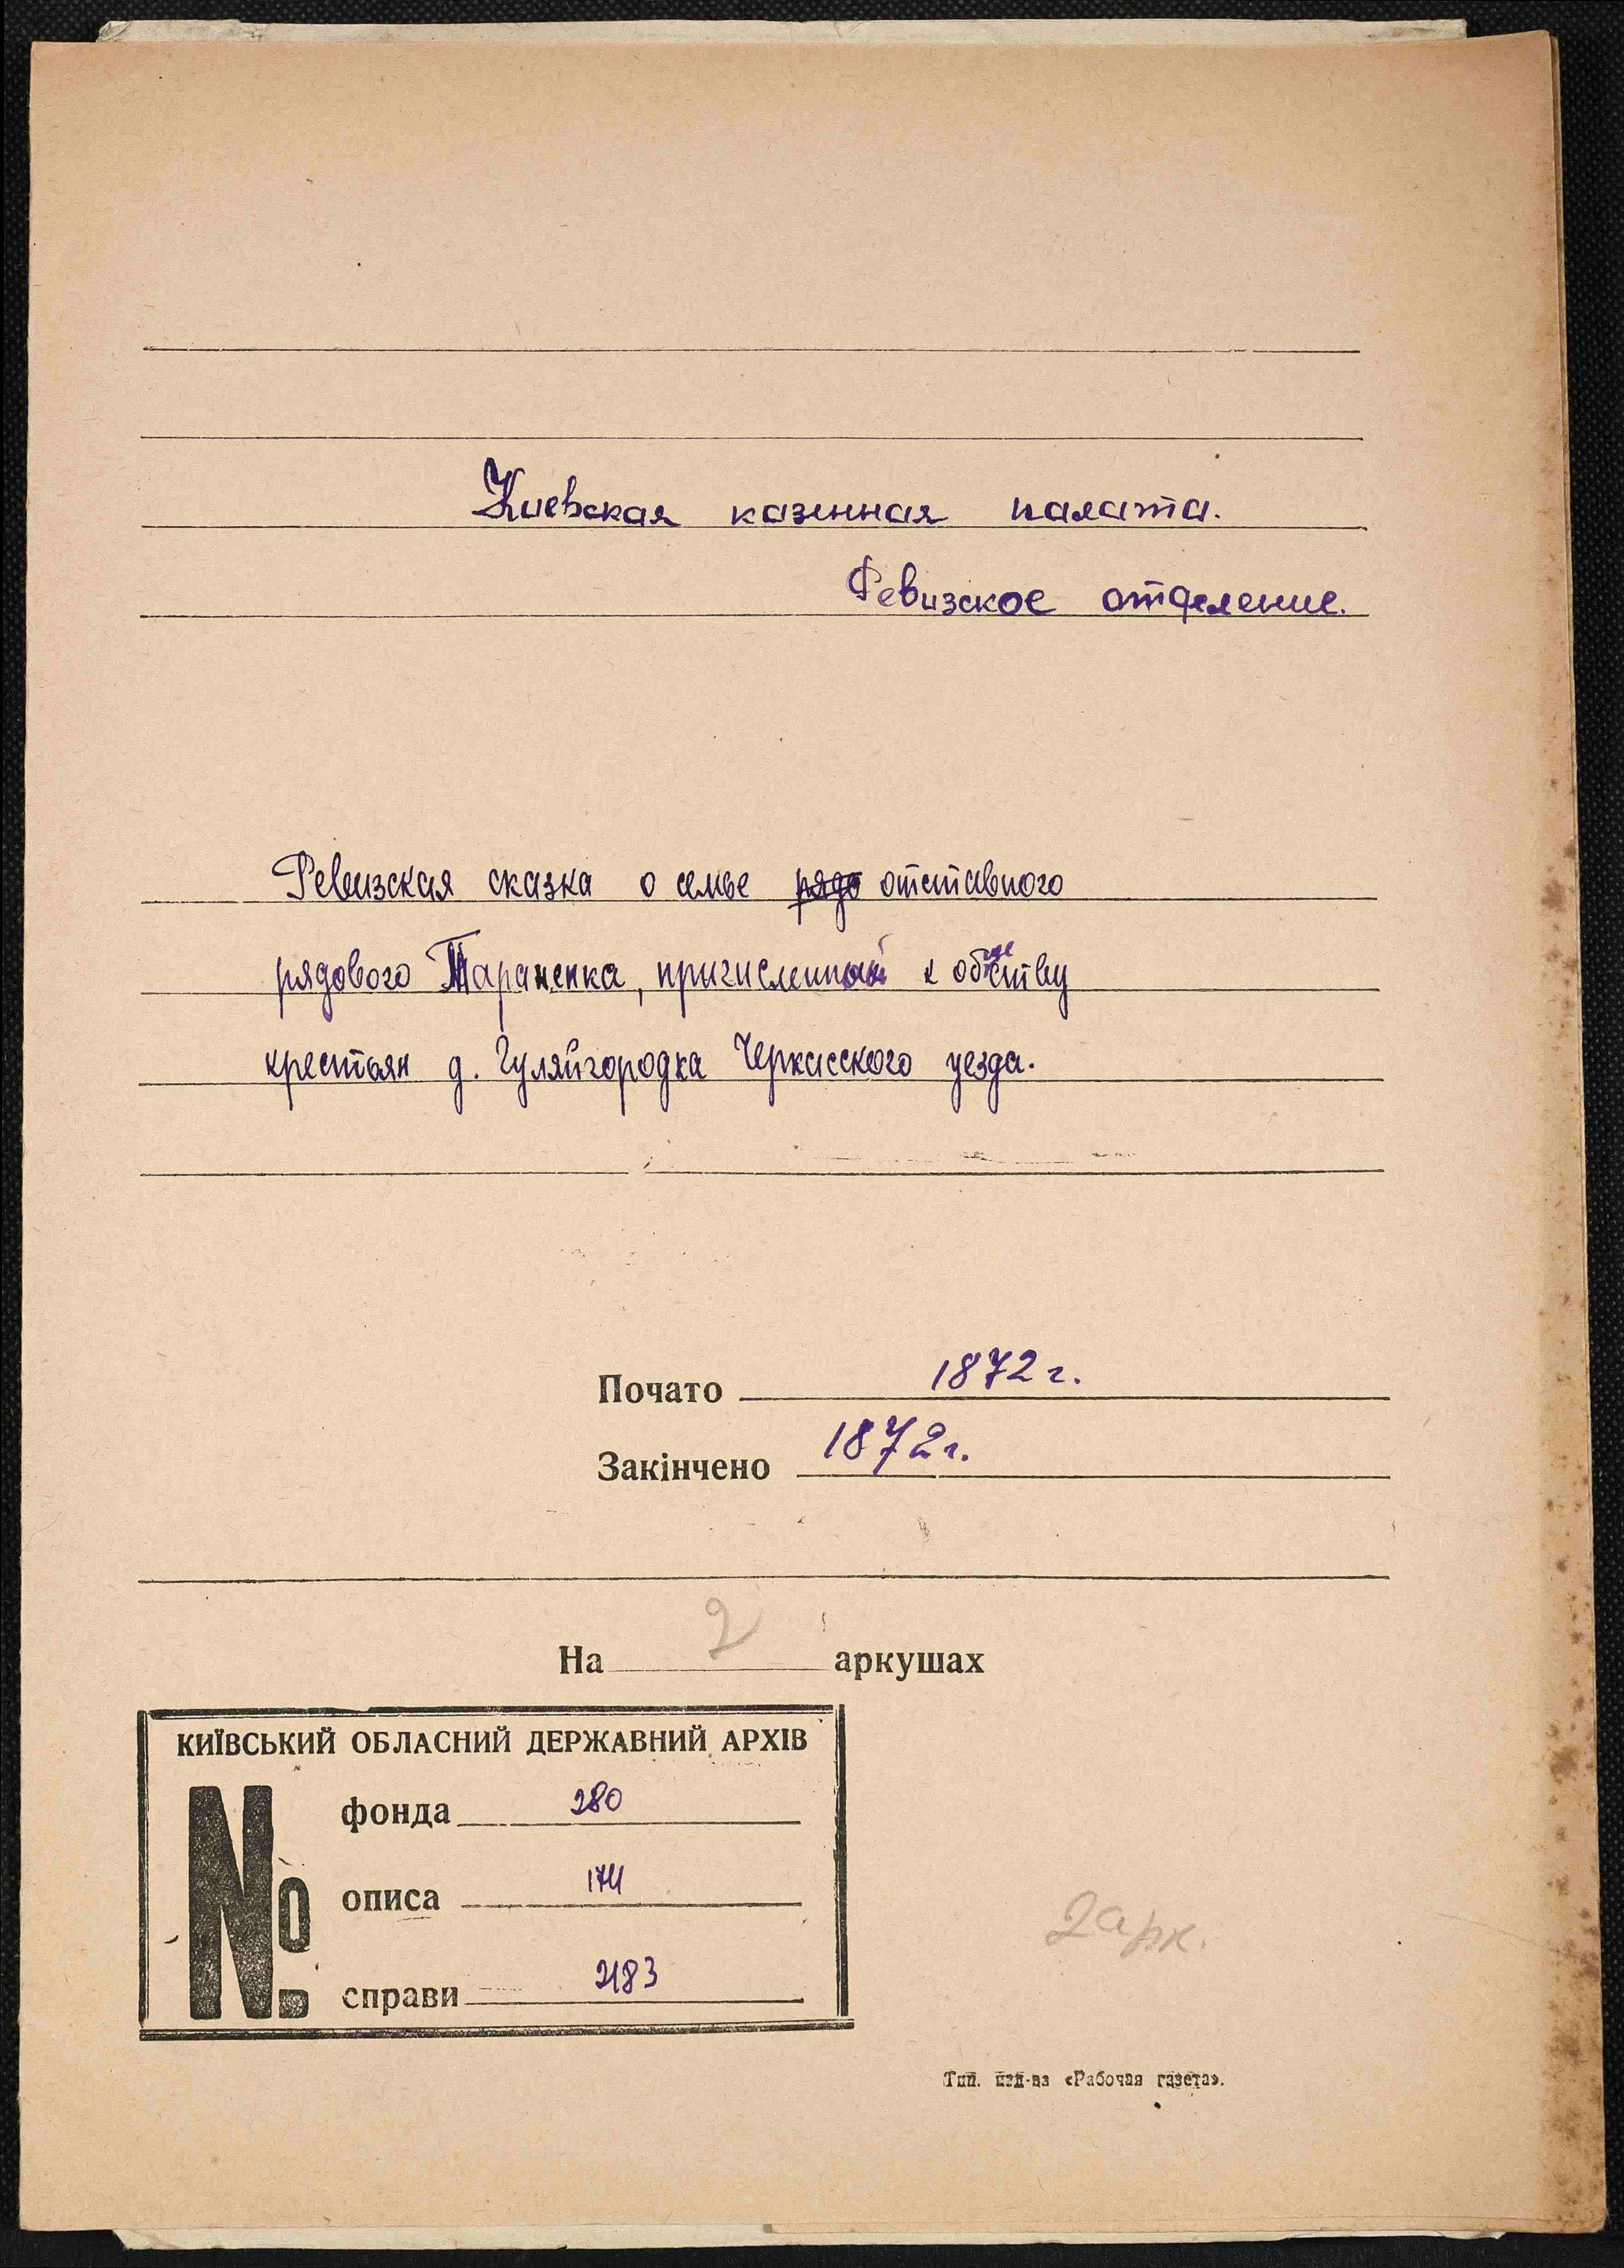 Киевская казенная палата.
Ревизское отделение.
Ревизская сказка о семье рядо отставного
рядового Тараненка, причисленной к обществу
крестьян д. Гуляйгородка Черкасского уезда.
Почато 1872 г.
Закінчено 1872 г.
На 2 аркушах
КИЇВСЬКИЙ ОБЛАСНИЙ ДЕРЖАВНИЙ АРХІВ
№
фонда 280
описа 174
справи 2183
2 арк.
Тип. изд-ва «Рабочая газета».